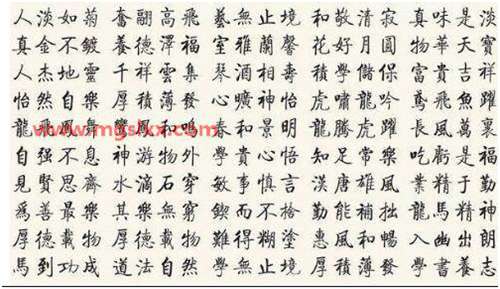 人淡如菊 奮翮高飛 藝無止境 和敬清寂 真味是淡
真金不鍍 養德澤福 室雅蘭馨 花好月圓 物華天寶
人杰地靈 千祥雲集 琴酒相壽 學儲保 富貴吉祥
怡然自樂 厚積薄發 心曠神怡 虎嘯龍吟 鳶飛魚躍
龍飛鳳舞 和鳴 春和景明 龍騰虎躍 長風萬裏
www.mgslxx.com
自强不息 神游物外 學貴心悟 知足常樂 吃虧是福
見賢思齊 水滴石穿 敏事慎言 漢唐雄風 業精于勤
爲善最樂 其樂無窮 鍥而不捨 勤能補拙 龍馬精神
厚德載物 厚德載物 難得糊塗 惠風和暢 入幽出朗
馬到功成 道法自然 學無止境 厚積薄發 學書養志